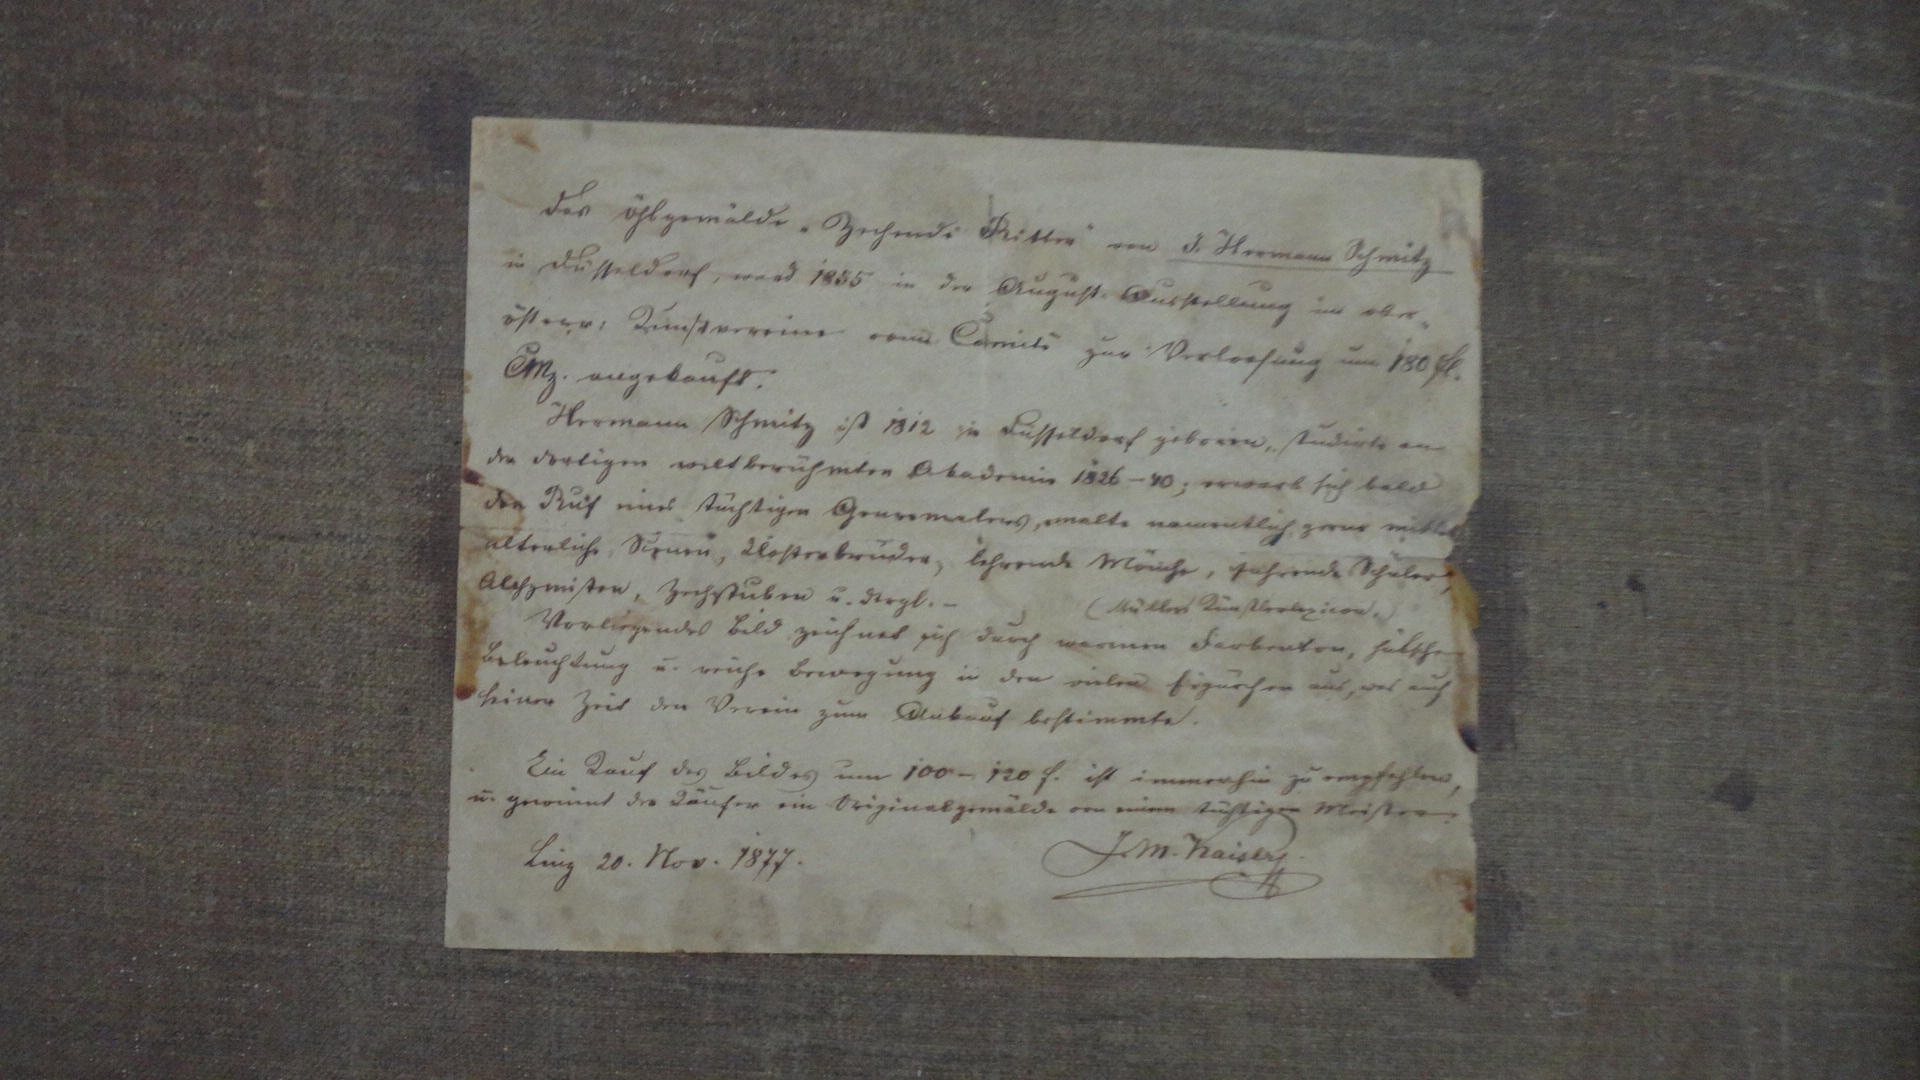 Das Öhlgemälde „Zechende Ritter" von J. Hermann Schmitz
in Düsseldorf, ward 1855 in der August-Ausstellung im ober-
österr: Kunstvereine vom Comité zur Verloosung um 180 fl.
CMz. angekauft.
Hermann Schmitz ist 1812 in Düsseldorf geboren, studirte an
der dortigen weltberühmten Akademie 1826–40; erwarb sich bald
den Ruf eines tüchtigen Genremalers, malte namentlich gerne mittel-
alterliche Scenen, Klosterbrüder, lehrende Mönche, fahrende Schüler,
Alchymisten, Zechstuben u. dergl. –
(Müllers Künstlerlexicon.)
Vorliegendes Bild zeichnet sich durch warmen Farbenton, hübsche
Beleuchtung u. reiche Bewegung in den vielen Figürchen aus, was auch
seiner Zeit den Verein zum Ankauf bestimmte.
Ein Kauf des Bildes um 100 – 120 f. ist immerhin zu empfehlen,
u. gewinnt der Käufer ein Originalgemälde von einem tüchtigen Meister.
Linz 20. Nov. 1877.
J. M. Kaiser